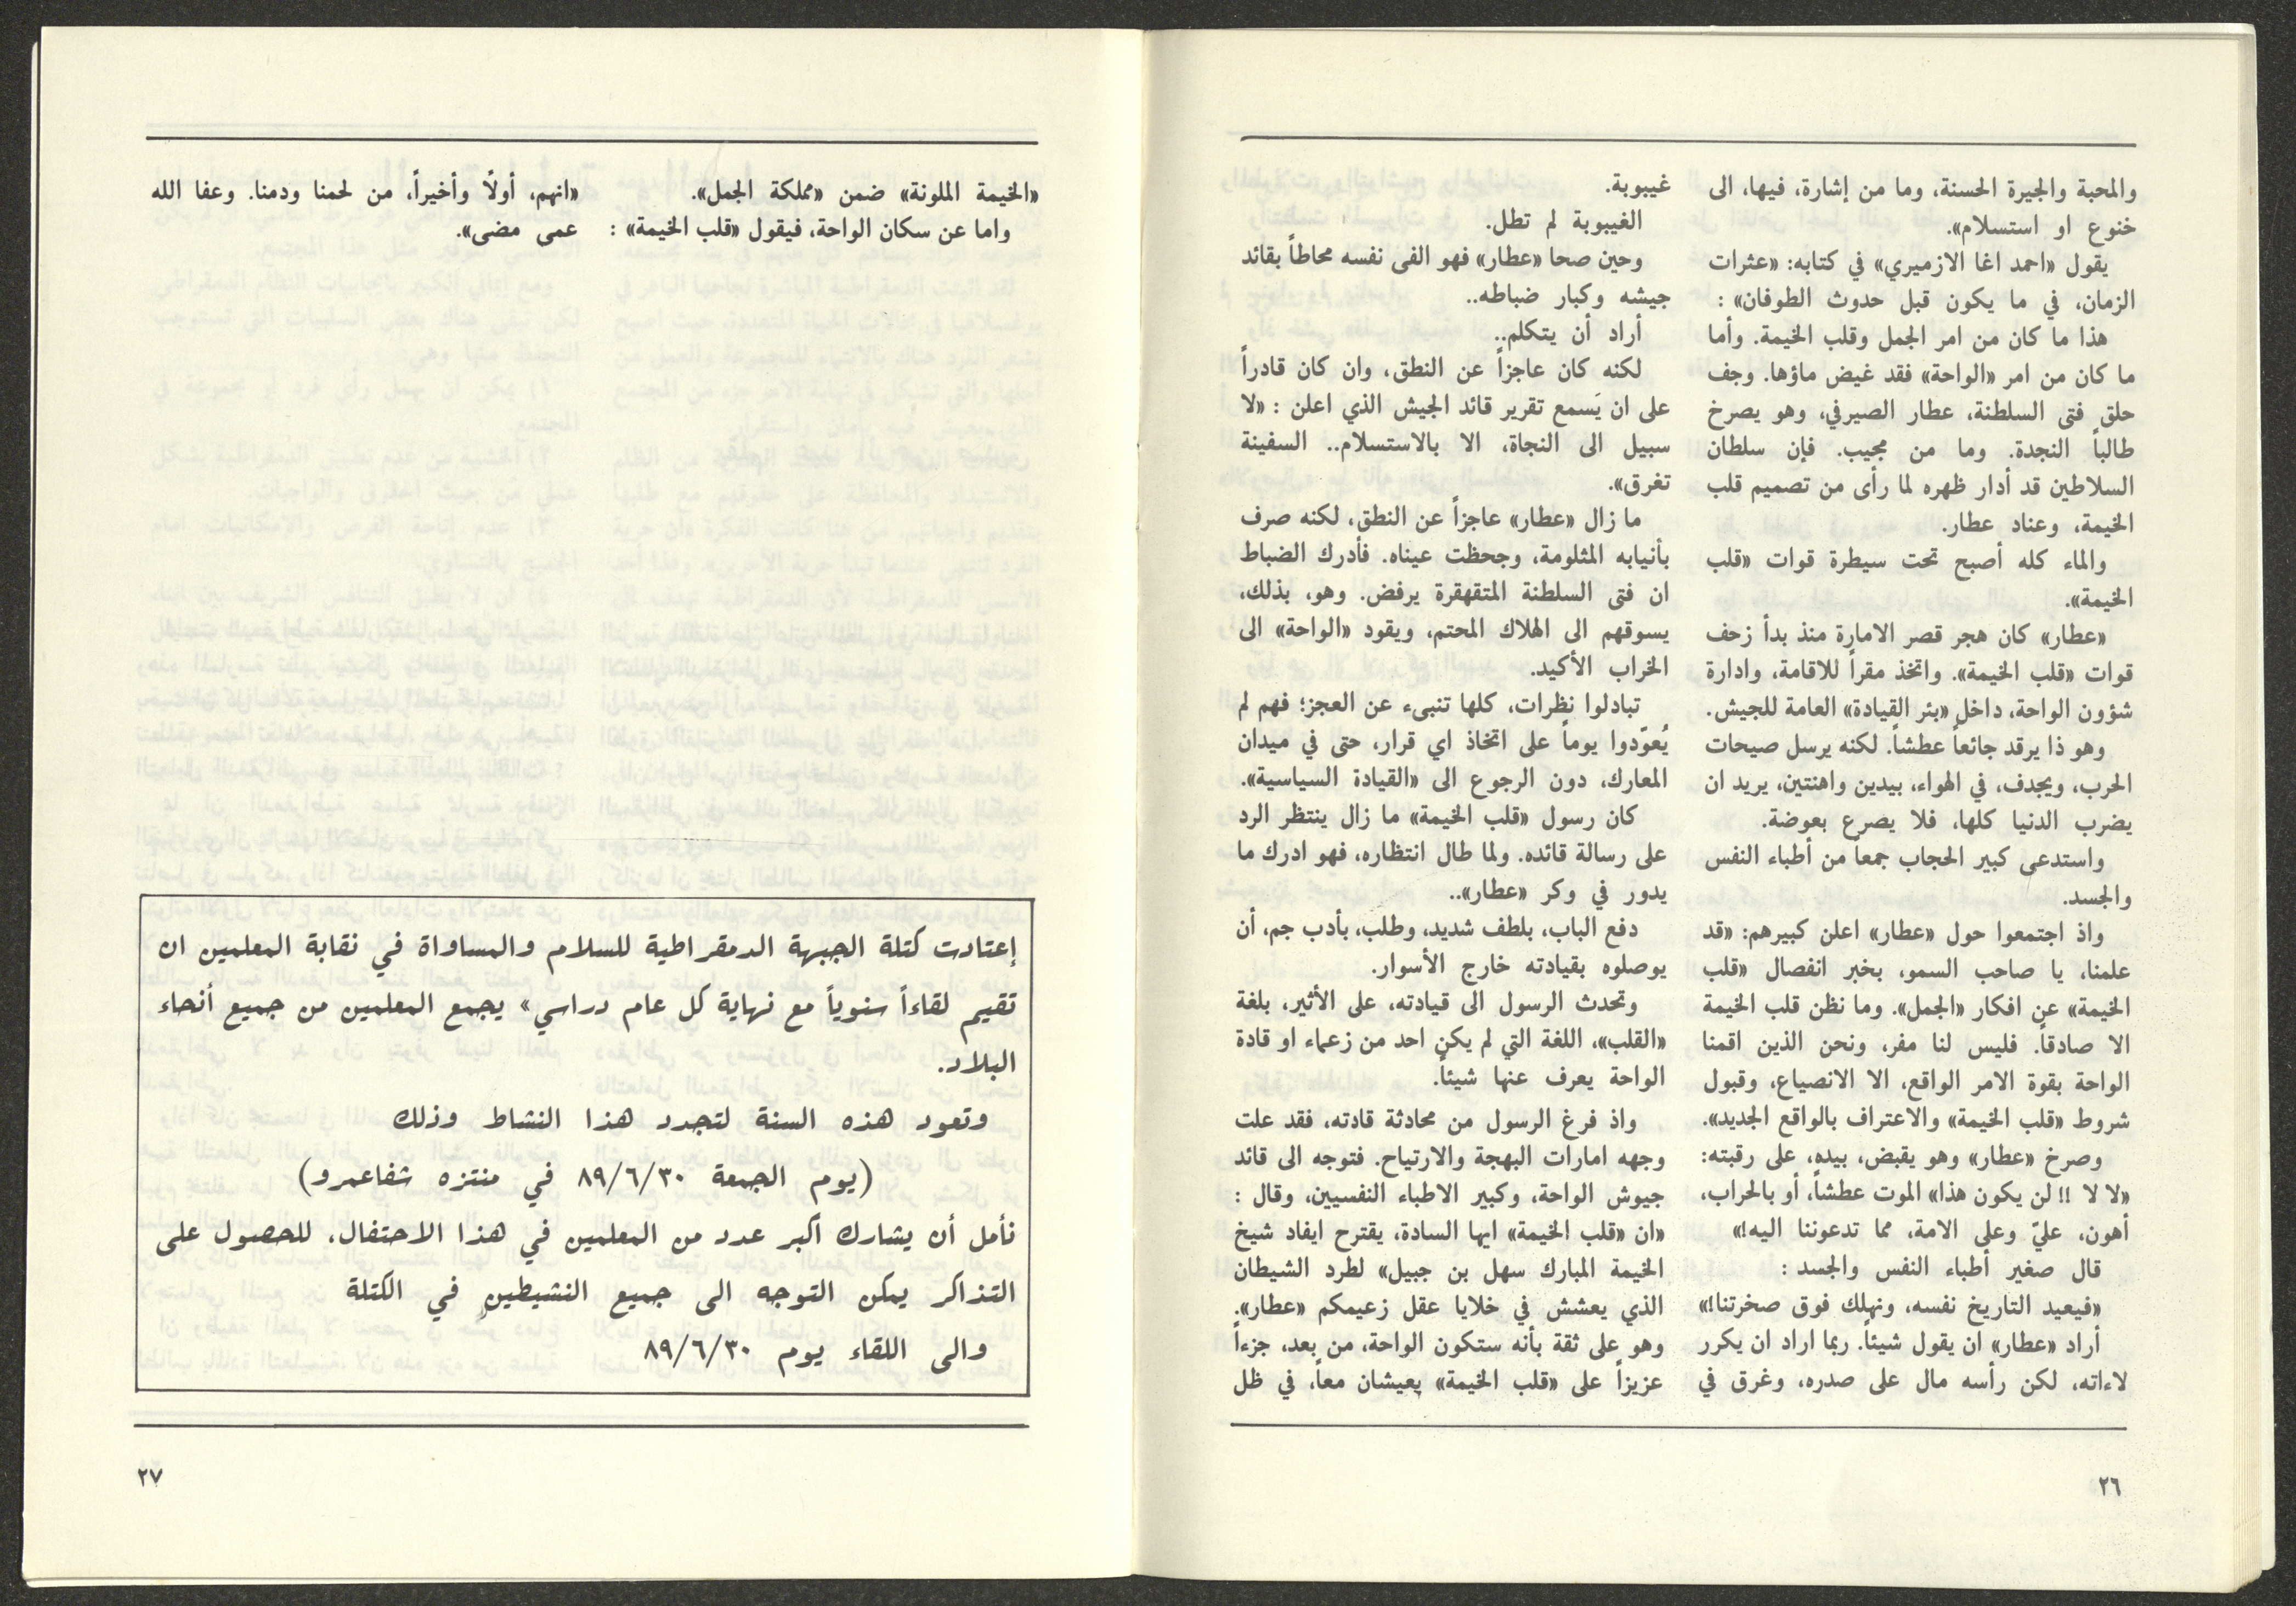 والمحبة والجيرة الحسنة، وما من إشارة، فيها، الى
خنوع او استسلام».
يقول «احمد اغا الازميري» في كتابه: «عثرات
الزمان، في ما يكون قبل حدوث الطوفان» :
هذا ما كان من امر الجمل وقلب الخيمة. وأما
ما كان من امر «الواحة» فقد غيض ماؤها. وجف
حلق فتى السلطنة، عطار الصيرفي، وهو يصرخ
طالباً النجدة. وما من مجيب. فإن سلطان
السلاطين قد أدار ظهره لما رأى من تصميم قلب
الخيمة، وعناد عطار.
والماء كله أصبح تحت سيطرة قوات «قلب
الخيمة».
«عطار» كان هجر قصر الامارة منذ بدأ زحف
قوات «قلب الخيمة». واتخذ مقراً للاقامة، وادارة
شؤون الواحة، داخل «بئر القيادة» العامة للجيش.
وهو ذا يرقد جائعاً عطشاً. لكنه يرسل صيحات
الحرب، ويجدف، في الهواء، بيدين واهنتين، يريد ان
يضرب الدنيا كلها، فلا يصرع بعوضة.
واستدعى كبير الحجاب جمعاً من أطباء النفس
والجسد.
واذ اجتمعوا حول «عطار» اعلن كبيرهم: «قد
علمنا، يا صاحب السمو، بخبر انفصال «قلب
الخيمة» عن افكار «الجمل». وما نظن قلب الخيمة
الا صادقاً. فليس لنا مفر، ونحن الذين اقمنا
الواحة بقوة الامر الواقع، الا الانصياع، وقبول
شروط «قلب الخيمة» والاعتراف بالواقع الجديد».
وصرخ «عطار» وهو يقبض، بيده، على رقبته:
«لا لا !! لن يكون هذا» الموت عطشاً، أو بالحراب،
أهون، عليّ وعلى الامة، مما تدعوننا اليه!»
قال صغير أطباء النفس والجسد :
«فيعيد التاريخ نفسه، ونهلك فوق صخرتنا!»
أراد «عطار» ان يقول شيئاً. ربما اراد ان يكرر
لاءاته، لكن رأسه مال على صدره، وغرق في
غيبوبة.
الغيبوبة لم تطل.
وحين صحا «عطار» فهو الفى نفسه محاطاً بقائد
جيشه وكبار ضباطه..
أراد أن يتكلم..
لكنه كان عاجزاً عن النطق، وان كان قادراً
على ان يَسمع تقرير قائد الجيش الذي اعلن : «لا
سبيل الى النجاة، الا بالاستسلام.. السفينة
تغرق».
ما زال «عطار» عاجزاً عن النطق، لكنه صرف
بأنيابه المثلومة، وجحظت عيناه. فأدرك الضباط
ان فتى السلطنة المتقهقرة يرفض. وهو، بذلك،
يسوقهم الى الهلاك المحتم، ويقود «الواحة» الى
الخراب الأكيد.
تبادلوا نظرات، كلها تنبىء عن العجز؛ فهم لم
يُعوّدوا يوماً على اتخاذ اي قرار، حتى في ميدان
المعارك، دون الرجوع الى «القيادة السياسية».
كان رسول «قلب الخيمة» ما زال ينتظر الرد
على رسالة قائده. ولما طال انتظاره، فهو ادرك ما
يدور في وكر «عطار»..
دفع الباب، بلطف شديد، وطلب، بأدب جم، أن
يوصلوه بقيادته خارج الأسوار.
وتحدث الرسول الى قيادته، على الأثير، بلغة
«القلب»، اللغة التي لم يكن احد من زعماء او قادة
الواحة يعرف عنها شيئاً.
واذ فرغ الرسول من محادثة قادته، فقد علت
وجهه امارات البهجة والارتياح. فتوجه الى قائد
جيوش الواحة، وكبير الاطباء النفسيين، وقال :
«ان «قلب الخيمة» ايها السادة، يقترح ايفاد شيخ
الخيمة المبارك سهل بن جبيل» لطرد الشيطان
الذي يعشش في خلايا عقل زعيمكم «عطار».
وهو على ثقة بأنه ستكون الواحة، من بعد، جزءاً
عزيزاً على «قلب الخيمة» يعيشان معاً، في ظل
٢٦
«الخيمة الملونة» ضمن «مملكة الجمل».
واما عن سكان الواحة، فيقول «قلب الخيمة» :
«انهم، أولاً وأخيراً، من لحمنا ودمنا. وعفا الله
عمى مضى».
إعتادت كتلة الجبهة الدمقراطية للسلام والمساواة في نقابة المعلمين ان
تقيم لقاءاً سنوياً مع نهاية كل عام دراسي» يجمع المعلمين من جميع أنحاء
البلاد.
وتعود هذه السنة لتجدد هذا النشاط وذلك
(يوم الجمعة ٨٩/٦/٣٠ في منتزه شفاعمرو)
نأمل أن يشارك أكبر عدد من المعلمين في هذا الاحتفال، للحصول على
التذاكر يمكن التوجه الى جميع النشيطين في الكتلة
والى اللقاء يوم ٨٩/٦/٣٠
٢٧